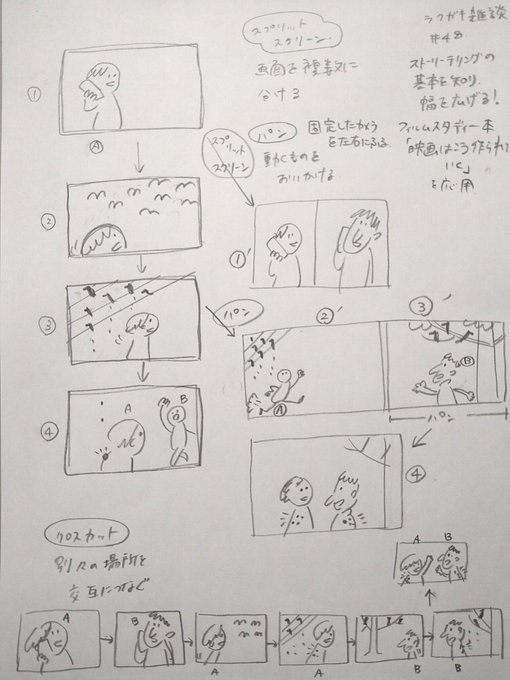 スプリット
スクリーン
画面を複数に
分ける
ラクガキ雑談
#48
ストーリーテリングの
基本を知り、
幅を広げる!
フィルムスタディー本
「映画はこう作られて
いく」の
を応用
スプリット
スクリーン
パン
固定したカメラ
を左右にふる
動くものを
おいかける
①
A
②
③
④
A
B
①'
パン
②'
③'
A
B
パン
④
クロスカット
別々の場所を
交互につなぐ
A B
A
B
A
A
B
B